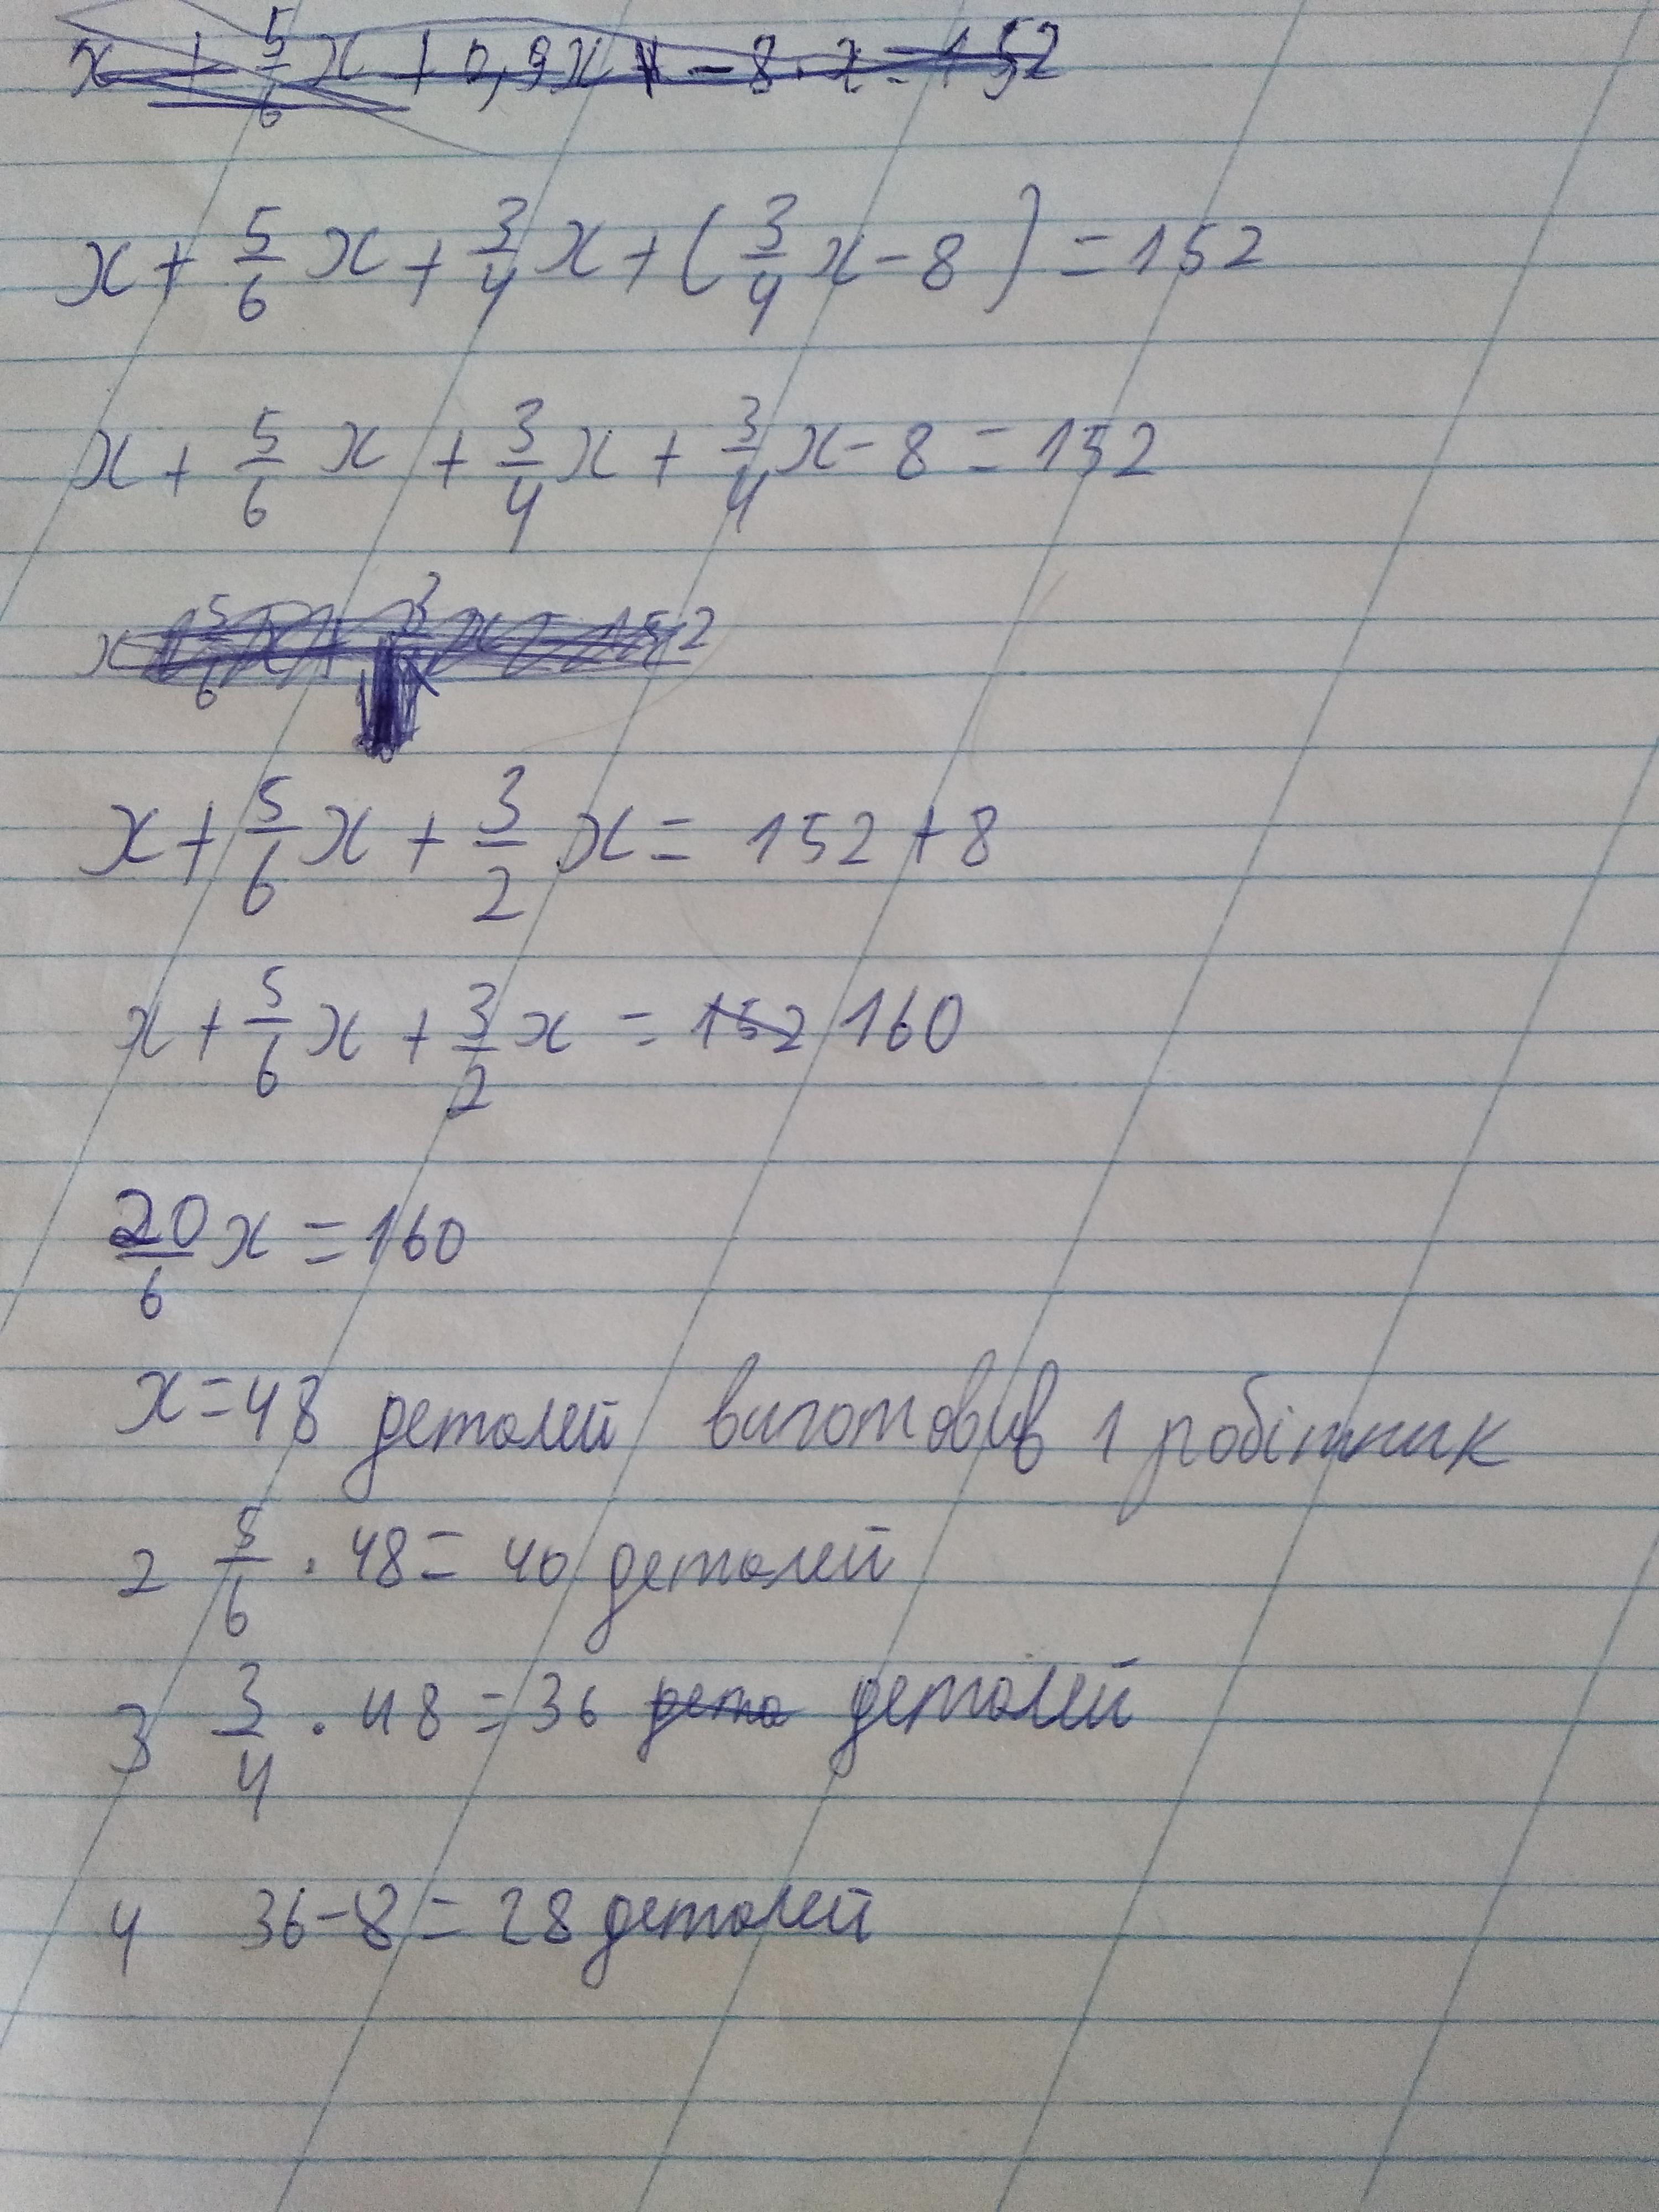 x + 5/6 x + 0,9x - 8 · x = 152
x + 5/6 x + 3/4 x + (3/4 x - 8) = 152
x + 5/6 x + 3/4 x + 3/4 x - 8 = 152
x + 5/6 x + 3/2 x = 152 + 8
x + 5/6 x + 3/2 x = 152 160
20/6 x = 160
x = 48 деталей виготовив 1 робітник
2 5/6 · 48 = 40 деталей
3 3/4 · 48 = 36 дета деталей
4 36 - 8 = 28 деталей